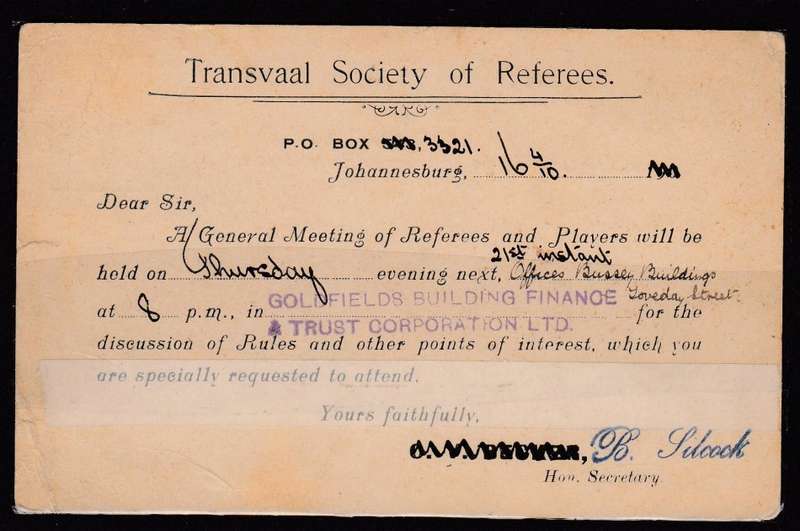 Transvaal Society of Referees.
P.O. BOX 3321.
Johannesburg, 16 4/10.
Dear Sir,
A General Meeting of Referees and Players will be
21st instant
held on Thursday evening next, Offices Bussey Buildings
Loveday Street.
at 8 p.m., in GOLDFIELDS BUILDING FINANCE for the
& TRUST CORPORATION LTD.
discussion of Rules and other points of interest, which you
are specially requested to attend.
Yours faithfully,
B. Silcock
Hon. Secretary.